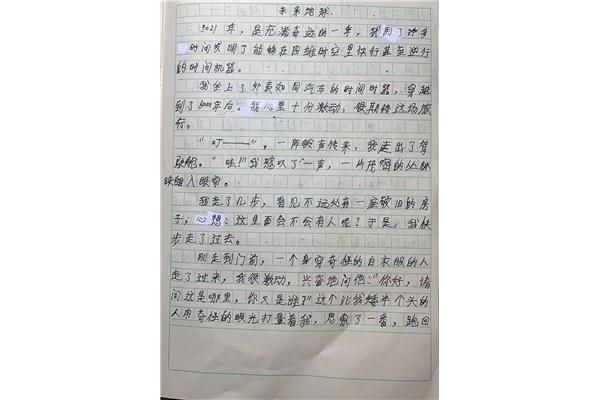 未来地球
3021年，是充满奇迹的一年，我用了许多
时间发明了能够在四维时空里快行甚至逆行
的时间机器。
我坐上了外表如同汽车的时间时器，穿越
到了6000年后。我心里十分激动，很期待这场旅
行。
"叮——"，一阵铃声传来，我走出了驾
驶舱。"哇！"我感叹了一声，一片茂密的丛林
映入眼帘。
我走了几步，看见不远处有一座破旧的房
子，心想：这里面会不会有人呢？于是，我快
步走了过去。
刚走到门前，一个身穿奇怪的白衣服的人
走了过来，我很激动，兴奋地问他："你好，请
问这是哪里，你又是谁？"这个比我矮半个头的
人用奇怪的眼光打量着我，思索了一番，跑回